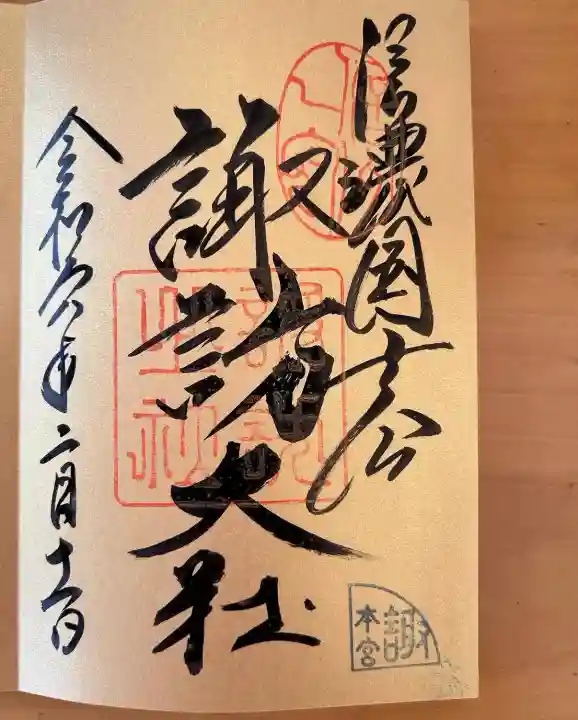 信濃国一之宮
諏訪大社
令和六年二月十一日
諏
本宮